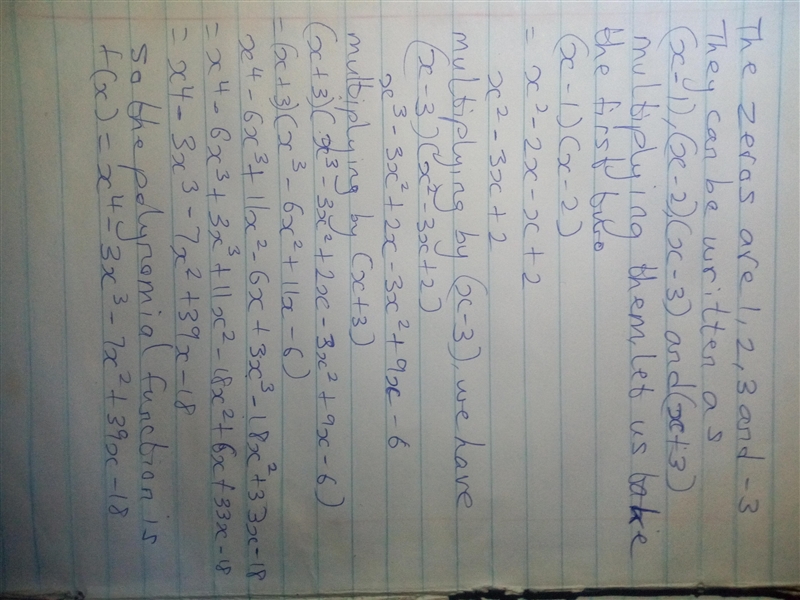 The zeros are 1, 2, 3 and -3
They can be written as
(x-1), (x-2), (x-3) and (x+3)
multiplying them, let us take
the first two
(x-1)(x-2)
= x² - 2x - x + 2
x² - 3x + 2
multiplying by (x-3), we have
(x-3)(x² - 3x + 2)
x³ - 3x² + 2x - 3x² + 9x - 6
multiplying by (x+3)
(x+3)(x³ - 3x² + 2x - 3x² + 9x - 6)
= (x+3)(x³ - 6x² + 11x - 6)
x⁴ - 6x³ + 11x² - 6x + 3x³ - 18x² + 33x - 18
= x⁴ - 6x³ + 3x³ + 11x² - 18x² + 6x + 33x - 18
= x⁴ - 3x³ - 7x² + 39x - 18
So the polynomial function is
f(x) = x⁴ - 3x³ - 7x² + 39x - 18